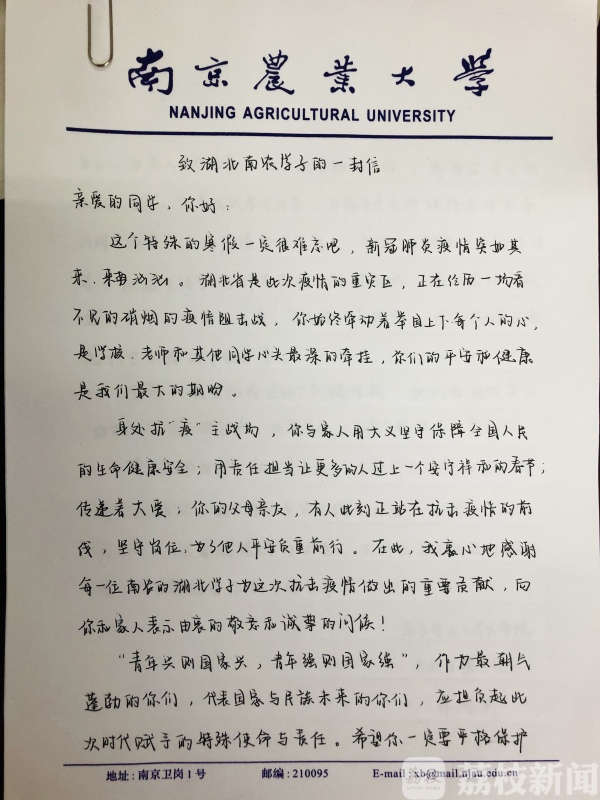 南京農業大學
NANJING AGRICULTURAL UNIVERSITY
致湖北南农学子的一封信
亲爱的同学，你好：
这个特殊的寒假一定很难忘吧，新冠肺炎疫情突如其
来、来势汹汹。湖北省是此次疫情的重灾区，正在经历一场看
不见的硝烟的疫情阻击战，你始终牵动着举国上下每个人的心，
是学校、老师和其他同学心头最深的牵挂，你们的平安和健康
是我们最大的期盼。
身处抗“疫”主战场，你与家人用大义坚守保障全国人民
的生命健康安全；用责任担当让更多的人过上一个安宁祥和的春节；
传递着大爱；你的父母亲友，有人此刻正站在抗击疫情的前
线，坚守岗位，为了他人平安负重前行。在此，我衷心地感谢
每一位南农的湖北学子为这次抗击疫情做出的重要贡献，向
你和家人表示由衷的敬意和诚挚的问候！
“青年兴则国家兴，青年强则国家强”，作为最朝气
蓬勃的你们，代表国家与民族未来的你们，应担负起此
次时代赋予的特殊使命与责任。希望你一定要严格保护
地址：南京卫岗1号 邮编：210095 E-mail:xb@mail.njau.edu.cn
荔枝新闻